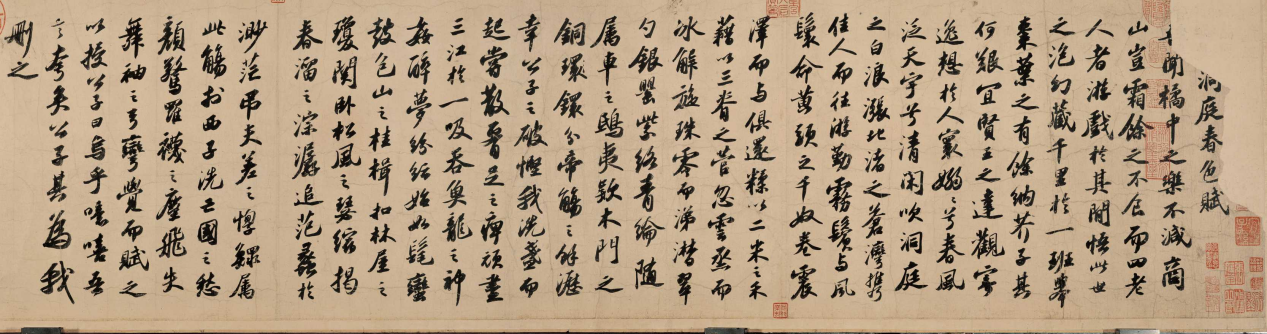 洞庭春色賦
吾聞橘中之樂不減商
山豈霜餘之不食而四老
人者游戲於其間悟此世
之泡幻藏千里於一班舉
棗葉之有餘納芥子其
何艱宜賢王之達觀寄
逸想於人寰嫋〻兮春風
泛天宇兮清閑吹洞庭
之白浪漲北渚之蒼灣攜
佳人而往游勤霧鬢与風
鬟命黃頭之千奴卷震
澤而与俱還糅以二米之禾
藉以三脊之菅忽雲烝而
冰解旋珠零而涕潸翠
勺銀罌紫絡青綸隨
属車之鴟夷款木門之
銅鐶分帝觴之餘瀝
幸公子之破慳我洗盞而
起嘗散腰足之痺頑盡
三江於一吸吞魚龍之神
姦醉夢紛紜始如髦蠻
鼓包山之桂楫扣林屋之
瓊關卧松風之瑟縮揭
春溜之淙潺追范蠡於
渺茫弔夫差之惸鰥属
此觴於西子洗亡國之愁
顏驚羅襪之塵飛失
舞袖之弓彎覺而賦之
以授公子曰烏乎噫嘻吾
言夸矣公子其為我
刪之